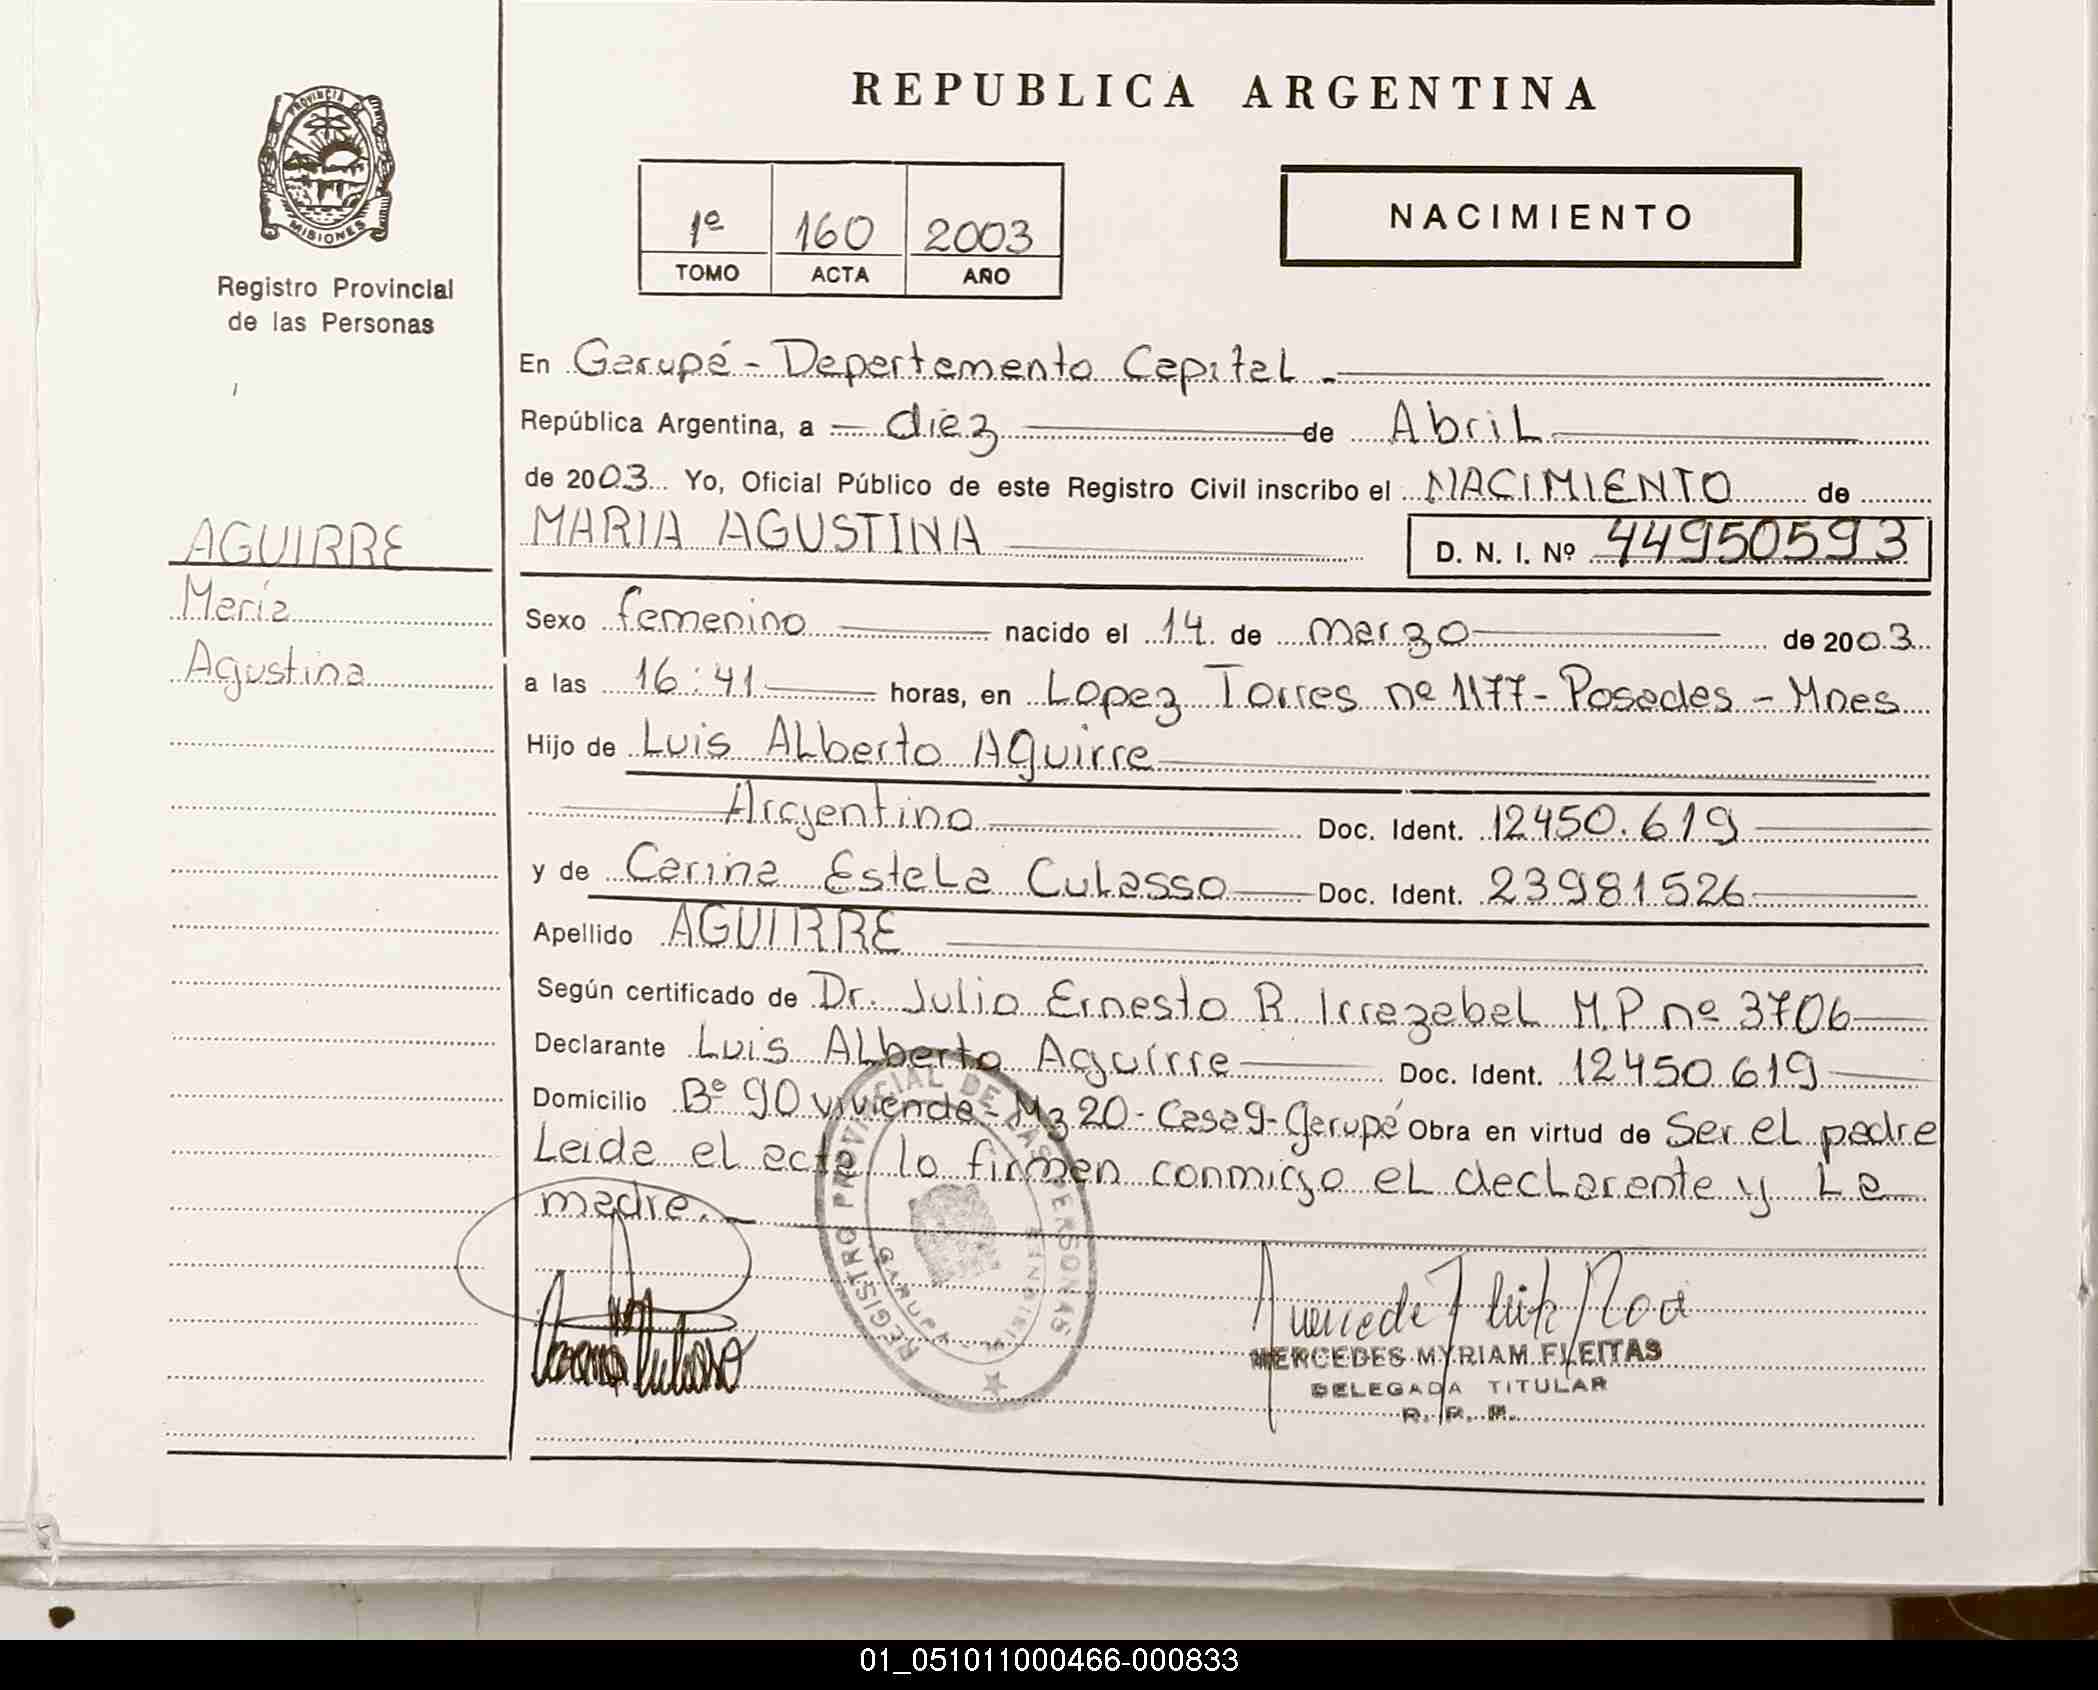 REPUBLICA ARGENTINA
PROVINCIA DE
MISIONES
Registro Provincial
de las Personas
1º 160 2003
TOMO ACTA AÑO
NACIMIENTO
En Garupá - Departamento Capital.
República Argentina, a diez de Abril
de 2003 Yo, Oficial Público de este Registro Civil inscribo el NACIMIENTO de
AGUIRRE
María
Agustina
MARIA AGUSTINA D. N. I. Nº 44950593
Sexo femenino nacido el 14 de marzo de 2003
a las 16:41 horas, en Lopez Torres nº 1177 - Posadas - Mnes
Hijo de Luis Alberto Aguirre
Argentino Doc. Ident. 12450.619
y de Carina Estela Culasso Doc. Ident. 23981526
Apellido AGUIRRE
Según certificado de Dr. Julio Ernesto R. Irrazabal M.P. nº 3706
Declarante Luis Alberto Aguirre Doc. Ident. 12450619
Domicilio Bº 90 vivienda - Mz 20 - Casa 9 - Garupá Obra en virtud de Ser el padre
Leida el acta, lo firman conmigo el declarante y La
madre.
REGISTRO PROVINCIAL DE LAS PERSONAS
GARUPA
MISIONES
MERCEDES MYRIAM FLEITAS
DELEGADA TITULAR
R. P. P.
01_051011000466-000833